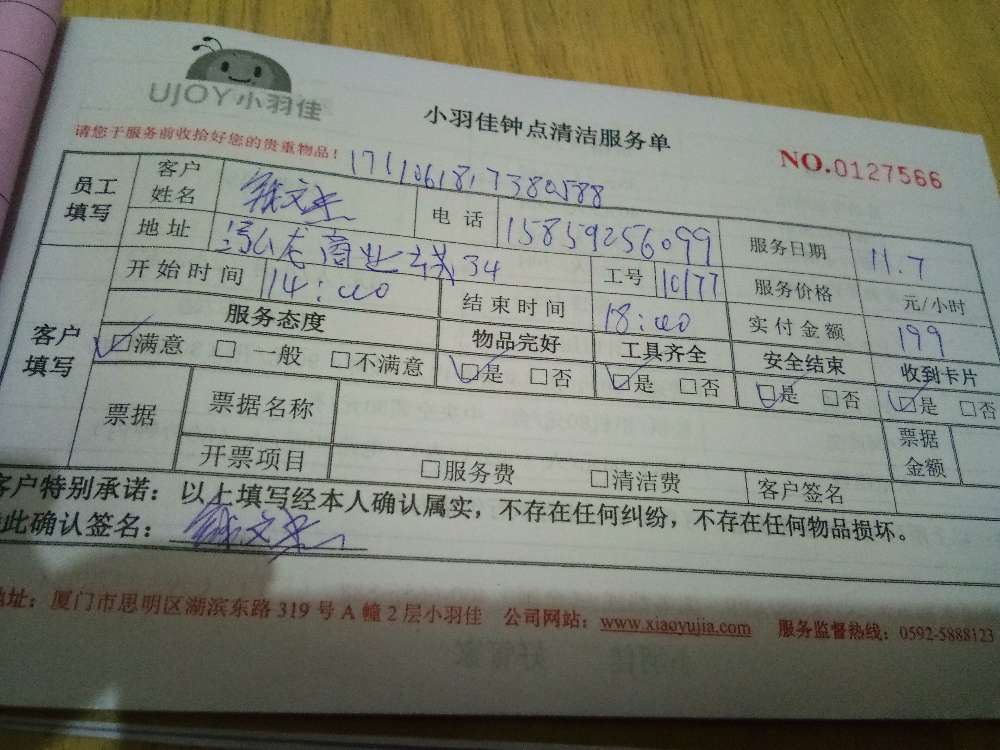 UJOY小羽佳
小羽佳钟点清洁服务单
请您于服务前收拾好您的贵重物品！
NO.0127566
1711061817380588
员工填写 客户姓名 电话 15859256099 服务日期 11.7
地址 商业城34 工号 10177 服务价格 元/小时
客户填写 开始时间 14:00 结束时间 18:00 实付金额 199
服务态度 物品完好 工具齐全 安全结束 收到卡片
☑满意 □一般 □不满意 ☑是 □否 ☑是 □否 ☑是 □否 ☑是 □否
票据 票据名称 票据金额
开票项目 □服务费 □清洁费 客户签名
客户特别承诺：以上填写经本人确认属实，不存在任何纠纷，不存在任何物品损坏。
此确认签名：
地址：厦门市思明区湖滨东路319号A幢2层小羽佳 公司网站：www.xiaoyujia.com 服务监督热线：0592-5888123